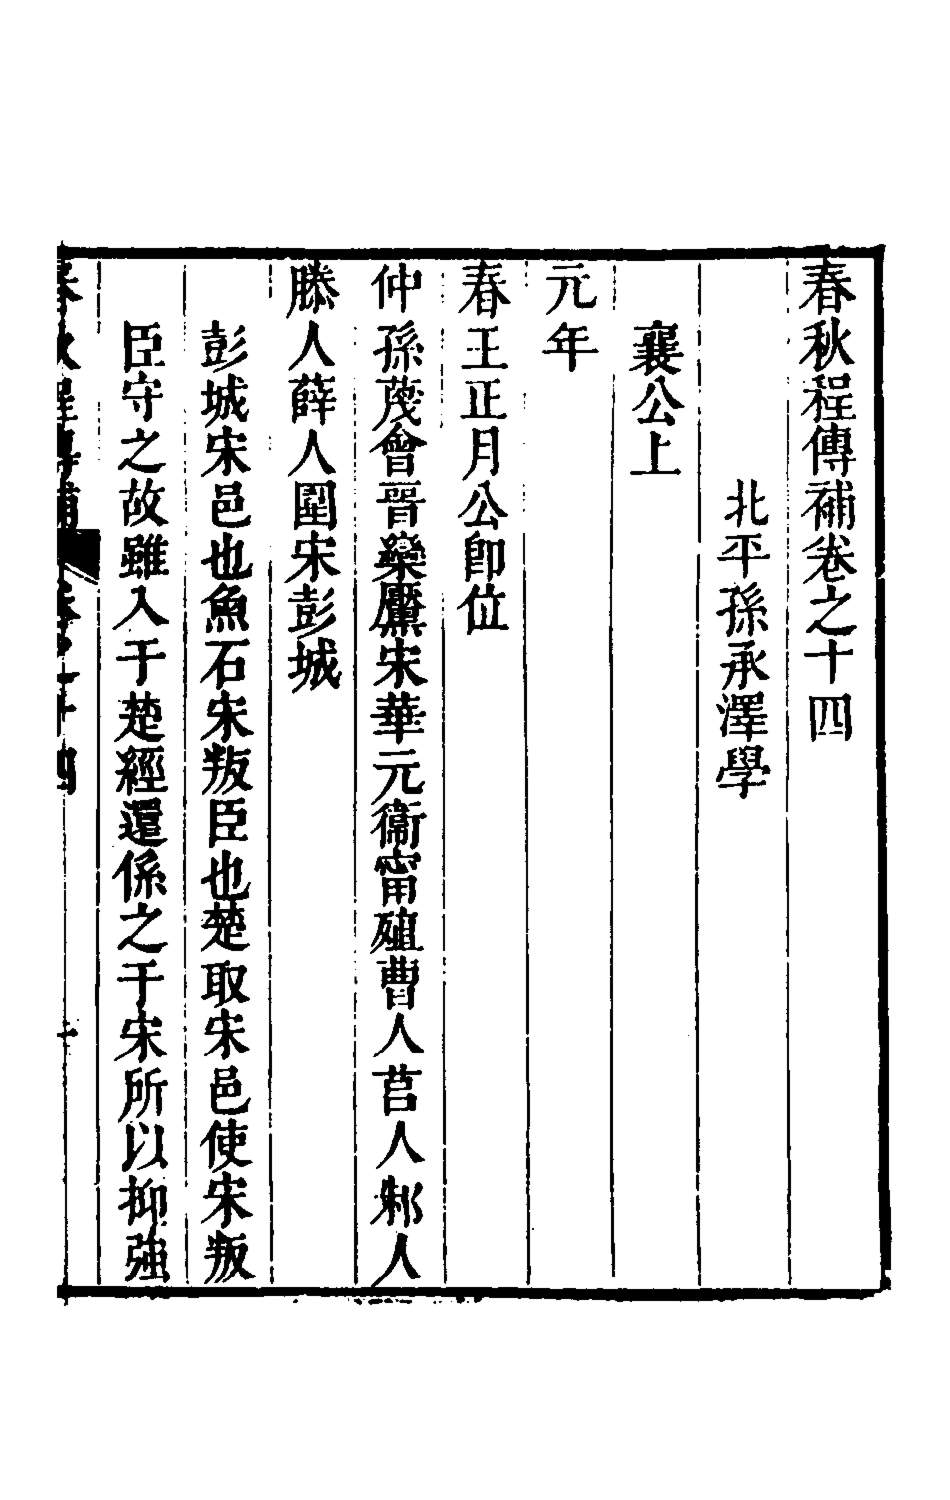 春秋程傳補卷之十四
北平孫承澤學
襄公上
元年
春王正月公卽位
仲孫蔑會晉欒黶宋華元衞甯殖曹人莒人邾人
滕人薛人圍宋彭城
彭城宋邑也魚石宋叛臣也楚取宋邑使宋叛
臣守之故雖入于楚經還係之于宋所以抑強
春秋程傳補 卷之十四 一